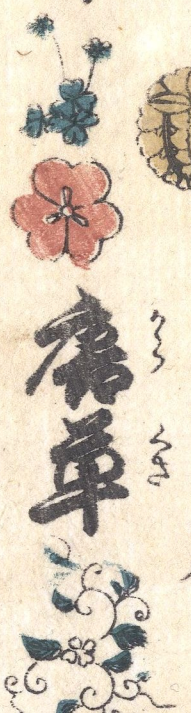 唐草
から くさ